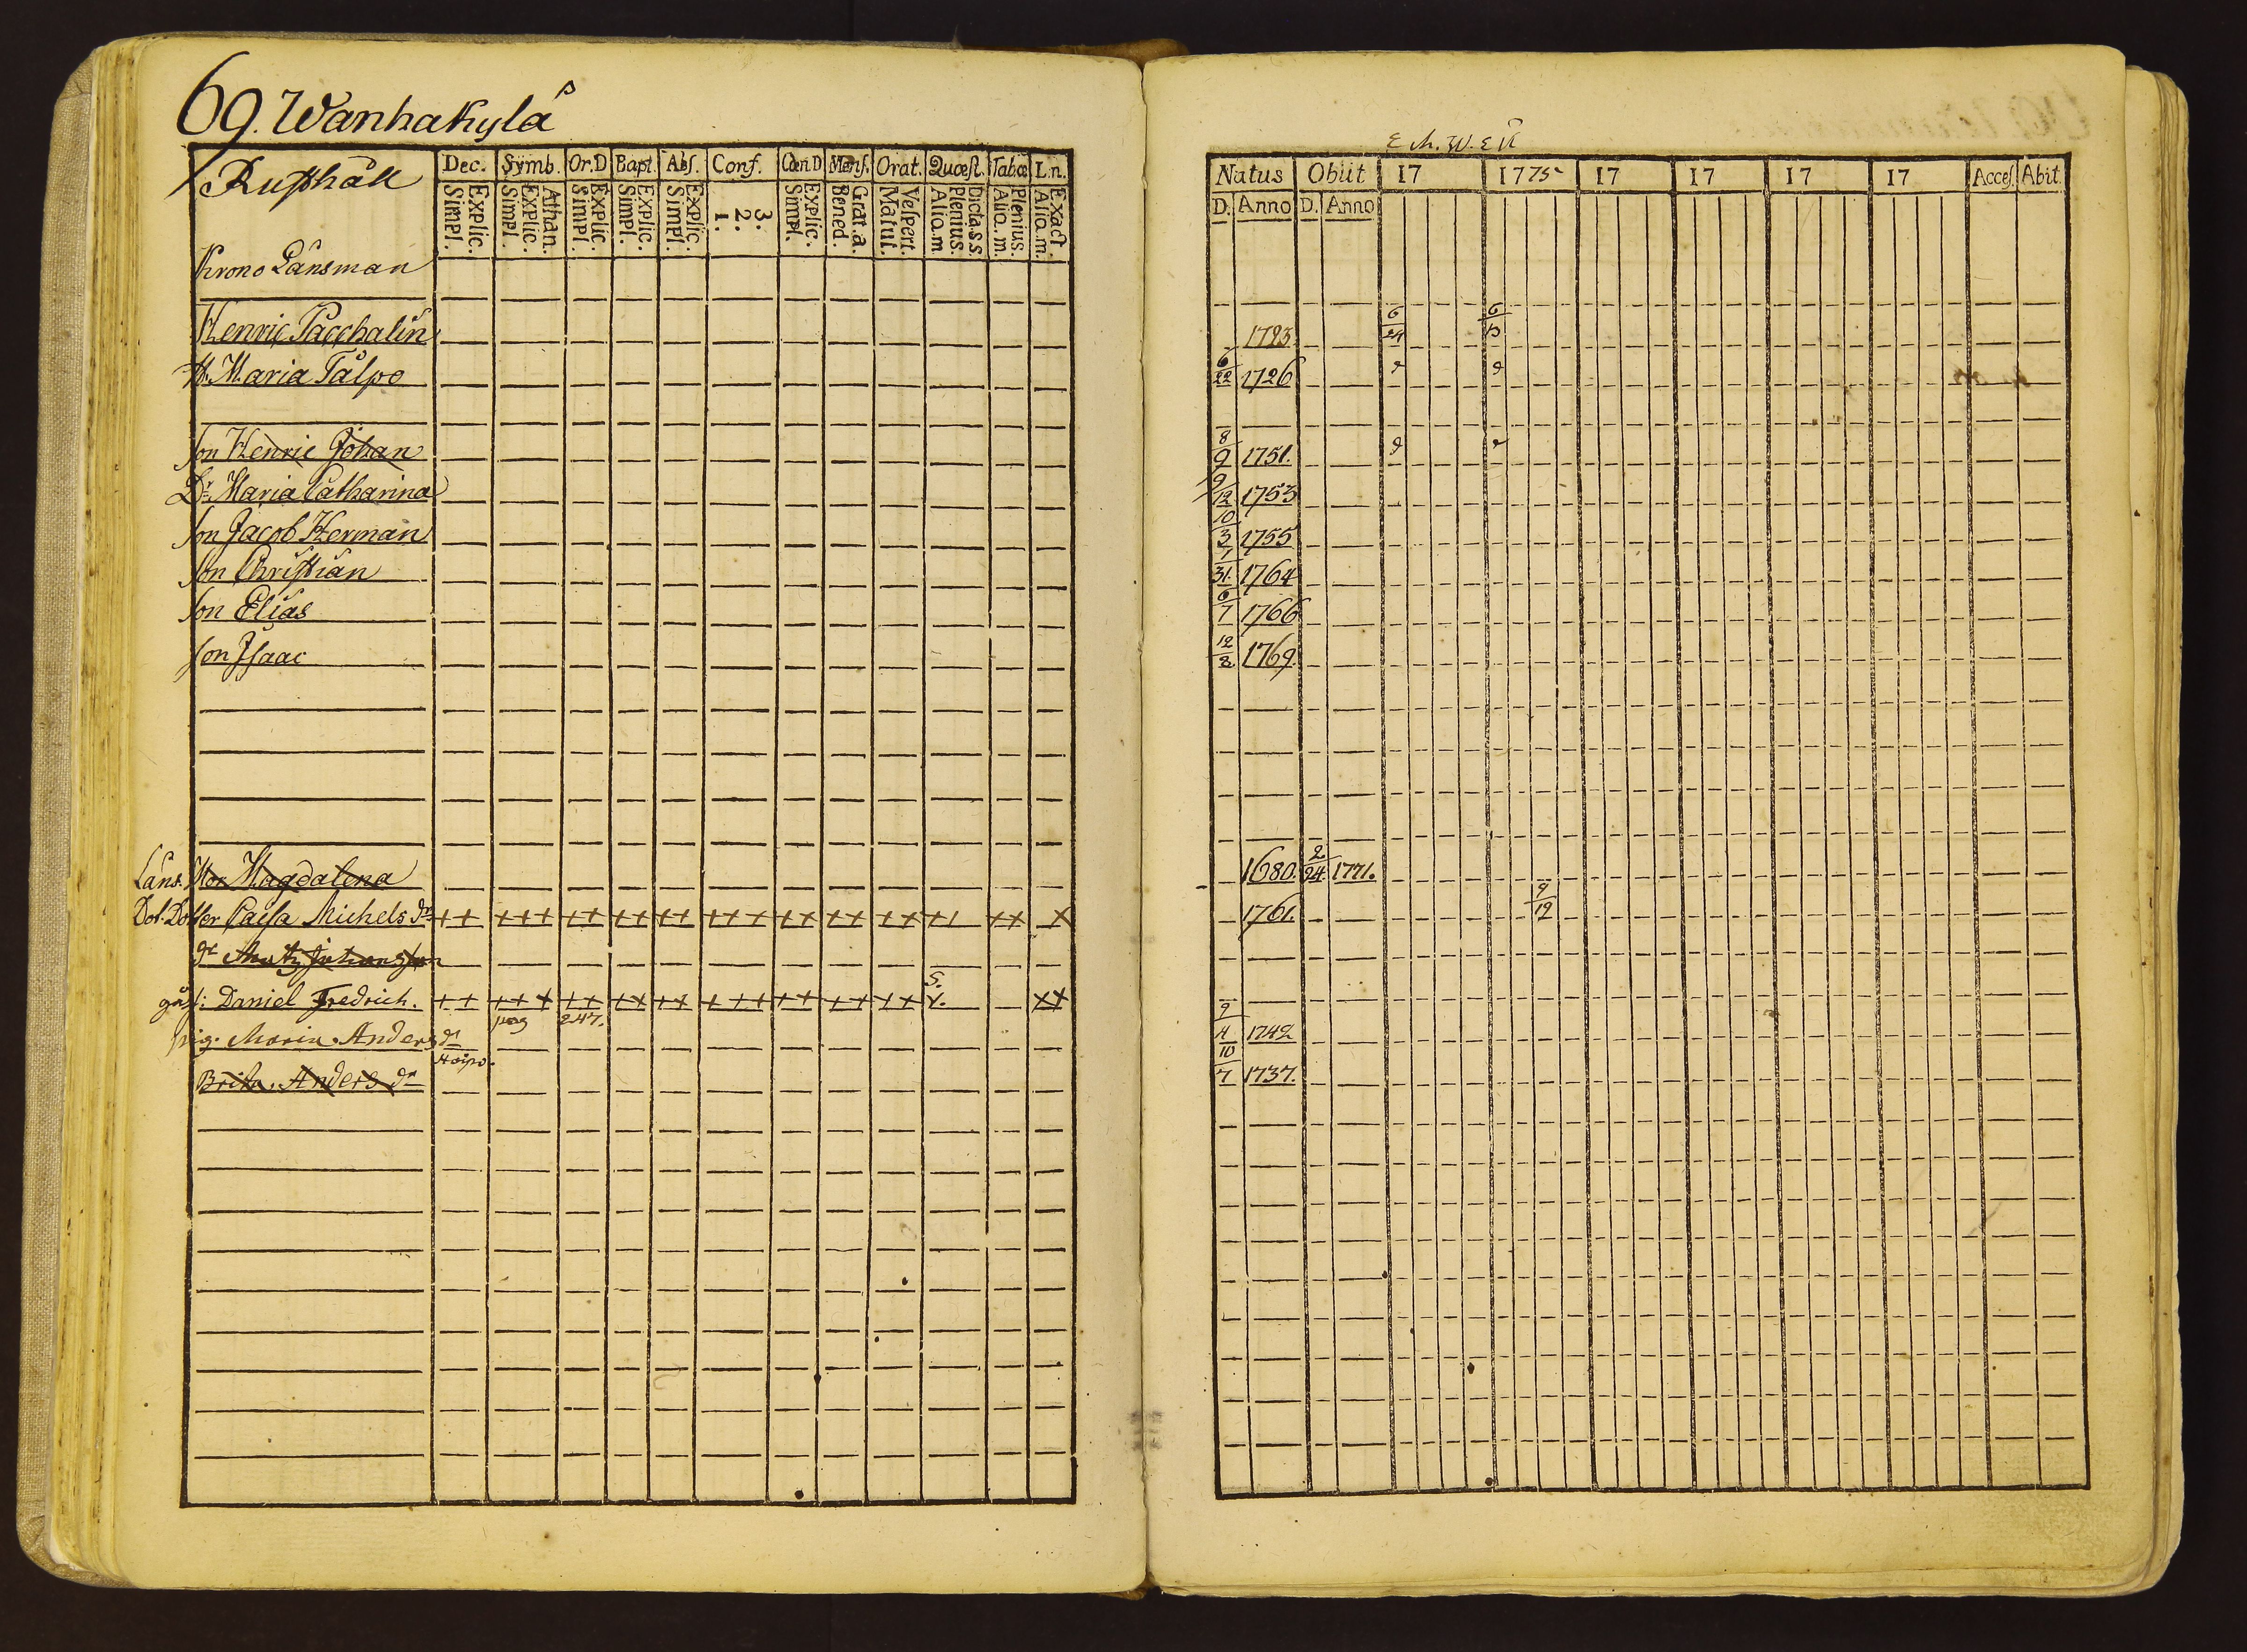 69. Wanhakylä
E M. W. E
Rusthåll
Dec. Symb. Or.D Bapt. Abs. Conf. Cœn.D Mens. Orat. Quæst. Tabœ L.n.
Natus Obiit 17 1775 17 17 17 17 Acces. Abit.
Explic. Simpl. Athan. Explic. Simpl. Explic. Simpl. Explic. Simpl. Explic. Simpl. 3. 2. 1. Explic. Simpl. Grat.a. Bened. Vespert. Matut. Dicta.s.s. Plenius. Aliq.m Plenius. Aliq.m. Exact. Aliq.m.
D. Anno D. Anno
Krono Länsman
Henric Pacchalin 1723. 6/24 6/13
H. Maria Talpo 6/22 1726
Son Henric Johan 8/9 1751.
Dr. Maria Catharina 9/12 1753
Son Jacob Herman 10/3 1755
Son Christian 1/31. 1764
Son Elias 6/7 1766
Son Isaac 12/2 1769.
Läns. Mor Magdalena 1680. 2/24. 1771.
Dot. Dotter Caisa Michels dr ++ +++ ++ ++ ++ +++ ++ ++ ++ ++ ++ + 1761. 9/12
dr Matz Johansson
gåss: Daniel Fredrich. ++ +++ ++ ++ ++ +++ ++ ++ ++ S. Y. ++
pag 247.
pig. Maria Anders dr 9/4 1742
Brita Anders dr 10/7 1737.